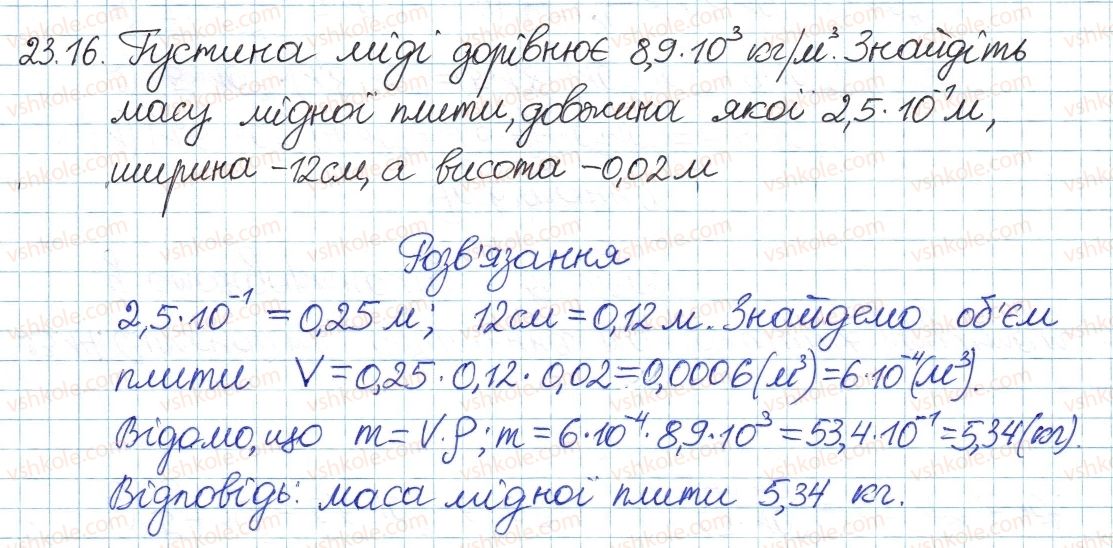 23.16. Густина міді дорівнює 8,9·10³ кг/м³. Знайдіть
масу мідної плити, довжина якої 2,5·10⁻¹м,
ширина -12см, а висота -0,02м
Розв'язання
2,5·10⁻¹ = 0,25 м; 12см = 0,12 м. Знайдемо об'єм
плити V = 0,25·0,12·0,02 = 0,0006 (м³) = 6·10⁻⁴(м³).
Відомо, що m = V·ρ; m = 6·10⁻⁴·8,9·10³ = 53,4·10⁻¹ = 5,34 (кг).
Відповідь: маса мідної плити 5,34 кг.